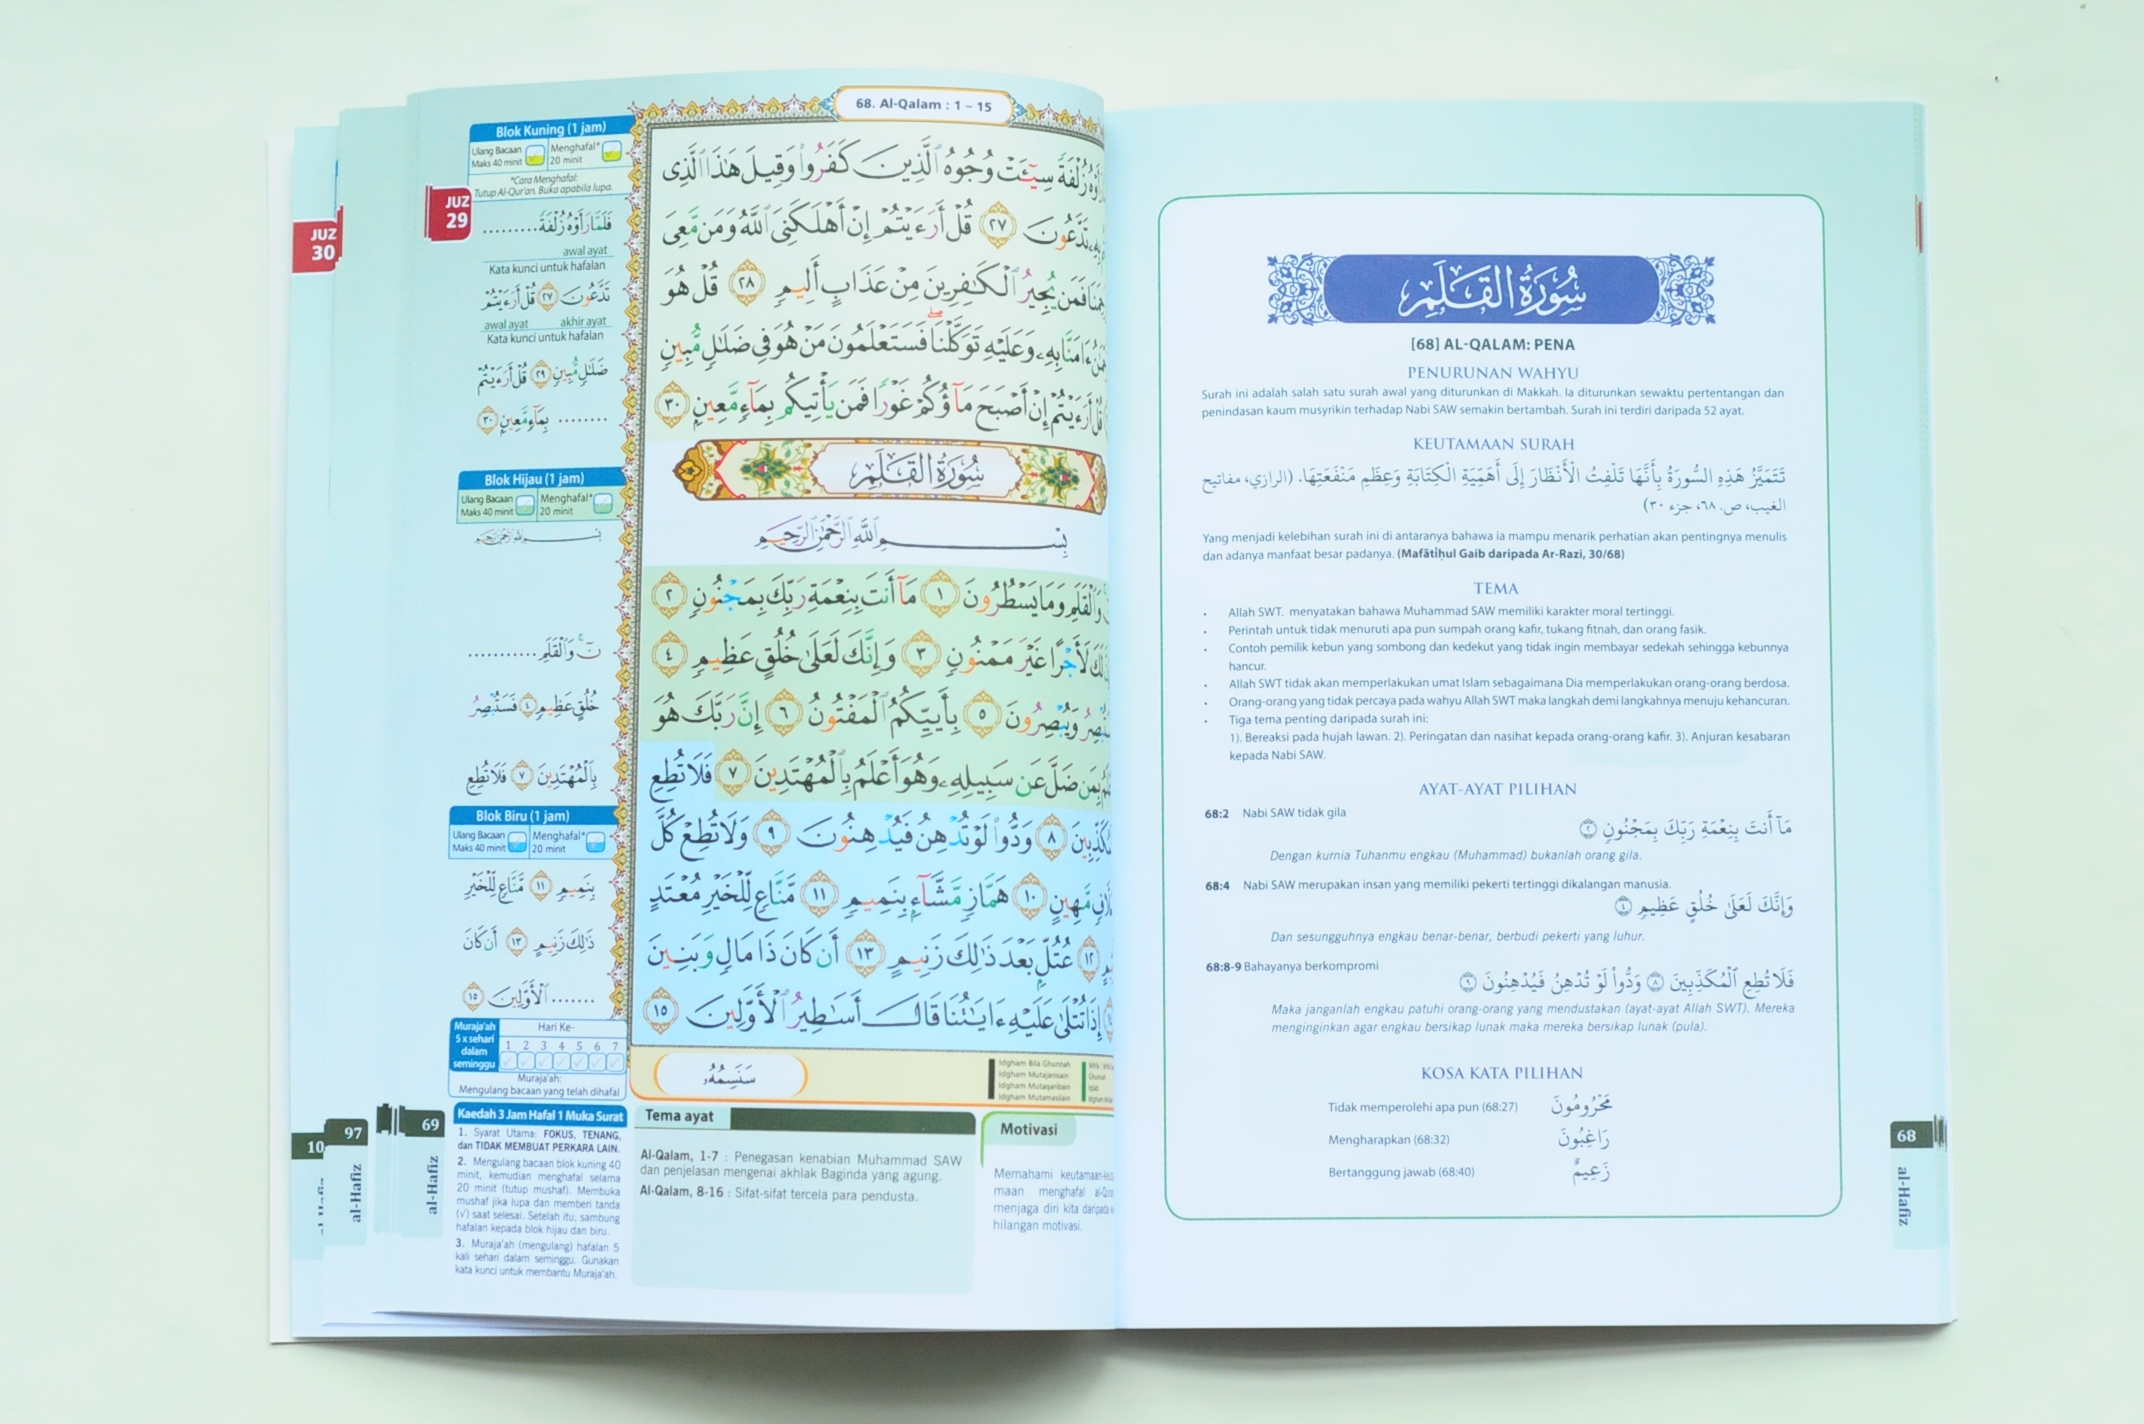 68. Al-Qalam : 1 – 15
Blok Kuning (1 jam)
Ulang Bacaan
Maks 40 minit
Menghafal*
20 minit
*Cara Menghafal:
Tutup Al-Qur'an. Buka apabila lupa.
JUZ
29
JUZ
30
فَلَمَّا رَأَوْهُ زُلْفَةً.........
awal ayat
Kata kunci untuk hafalan
تَدَّعُونَ ٢٧ قُلْ أَرَءَيْتُمْ
awal ayat akhir ayat
Kata kunci untuk hafalan
ضَلَٰلٍ مُّبِينٍ ٢٩ قُلْ أَرَءَيْتُمْ
........ بِمَآءٍ مَّعِينٍ ٣٠
Blok Hijau (1 jam)
Ulang Bacaan
Maks 40 minit
Menghafal*
20 minit
بِسْمِ ٱللَّهِ ٱلرَّحْمَٰنِ ٱلرَّحِيمِ
نٓ ۚ وَٱلْقَلَمِ...........
خُلُقٍ عَظِيمٍ ٤ فَسَتُبْصِرُ
بِٱلْمُهْتَدِينَ ٧ فَلَا تُطِعِ
Blok Biru (1 jam)
Ulang Bacaan
Maks 40 minit
Menghafal*
20 minit
بِنَمِيمٍ ١١ مَّنَّاعٍ لِّلْخَيْرِ
ذَٰلِكَ زَنِيمٍ ١٣ أَن كَانَ
....... ٱلْأَوَّلِينَ ١٥
Muraja'ah
5 x sehari
dalam
seminggu
Hari Ke-
1 2 3 4 5 6 7
Muraja'ah:
Mengulang bacaan yang telah dihafal
زُلْفَةً سِيٓـَٔتْ وُجُوهُ ٱلَّذِينَ كَفَرُوا۟ وَقِيلَ هَٰذَا ٱلَّذِى
بِهِۦ تَدَّعُونَ ٢٧ قُلْ أَرَءَيْتُمْ إِنْ أَهْلَكَنِىَ ٱللَّهُ وَمَن مَّعِىَ
فَمَن يُجِيرُ ٱلْكَٰفِرِينَ مِنْ عَذَابٍ أَلِيمٍ ٢٨ قُلْ هُوَ
ءَامَنَّا بِهِۦ وَعَلَيْهِ تَوَكَّلْنَا ۖ فَسَتَعْلَمُونَ مَنْ هُوَ فِى ضَلَٰلٍ مُّبِينٍ
قُلْ أَرَءَيْتُمْ إِنْ أَصْبَحَ مَآؤُكُمْ غَوْرًا فَمَن يَأْتِيكُم بِمَآءٍ مَّعِينٍ ٣٠
سُورَةُ القَلَمِ
بِسْمِ ٱللَّهِ ٱلرَّحْمَٰنِ ٱلرَّحِيمِ
وَٱلْقَلَمِ وَمَا يَسْطُرُونَ ١ مَآ أَنتَ بِنِعْمَةِ رَبِّكَ بِمَجْنُونٍ ٢
لَأَجْرًا غَيْرَ مَمْنُونٍ ٣ وَإِنَّكَ لَعَلَىٰ خُلُقٍ عَظِيمٍ ٤
وَيُبْصِرُونَ ٥ بِأَييِّكُمُ ٱلْمَفْتُونُ ٦ إِنَّ رَبَّكَ هُوَ
بِمَن ضَلَّ عَن سَبِيلِهِۦ وَهُوَ أَعْلَمُ بِٱلْمُهْتَدِينَ ٧ فَلَا تُطِعِ
٨ وَدُّوا۟ لَوْ تُدْهِنُ فَيُدْهِنُونَ ٩ وَلَا تُطِعْ كُلَّ
مَّهِينٍ ١٠ هَمَّازٍ مَّشَّآءٍۭ بِنَمِيمٍ ١١ مَّنَّاعٍ لِّلْخَيْرِ مُعْتَدٍ
١٢ عُتُلٍّۭ بَعْدَ ذَٰلِكَ زَنِيمٍ ١٣ أَن كَانَ ذَا مَالٍ وَبَنِينَ
إِذَا تُتْلَىٰ عَلَيْهِ ءَايَٰتُنَا قَالَ أَسَٰطِيرُ ٱلْأَوَّلِينَ ١٥
سَنَسِمُهُۥ
Idgham Bila Ghunnah
Idgham Mutajanisain
Idgham Mutaqaribain
Idgham Mutamasilain
Kaedah 3 Jam Hafal 1 Muka Surat
1. Syarat Utama: FOKUS, TENANG,
dan TIDAK MEMBUAT PERKARA LAIN.
2. Mengulang bacaan blok kuning 40
minit, kemudian menghafal selama
20 minit (tutup mushaf). Membuka
mushaf jika lupa dan memberi tanda
(√) saat selesai. Setelah itu, sambung
hafalan kepada blok hijau dan biru.
3. Muraja'ah (mengulang) hafalan 5
kali sehari dalam seminggu. Gunakan
kata kunci untuk membantu Muraja'ah.
Tema ayat
Al-Qalam, 1-7 : Penegasan kenabian Muhammad SAW
dan penjelasan mengenai akhlak Baginda yang agung.
Al-Qalam, 8-16 : Sifat-sifat tercela para pendusta.
Motivasi
Memahami
maan menghafal
menjaga diri kita daripada
hilangan motivasi.
10
97
al-Hafiz
69
al-Hafiz
سُورَةُ القَلَمِ
[68] AL-QALAM: PENA
PENURUNAN WAHYU
Surah ini adalah salah satu surah awal yang diturunkan di Makkah. Ia diturunkan sewaktu pertentangan dan
penindasan kaum musyrikin terhadap Nabi SAW semakin bertambah. Surah ini terdiri daripada 52 ayat.
KEUTAMAAN SURAH
تَتَمَيَّزُ هَذِهِ السُّورَةُ بِأَنَّهَا تَلْفِتُ الْأَنْظَارَ إِلَى أَهَمِّيَةِ الْكِتَابَةِ وَعِظَمِ مَنْفَعَتِهَا. (الرازي، مفاتيح
الغيب، ص. ٦٨، جزء ٣٠)
Yang menjadi kelebihan surah ini di antaranya bahawa ia mampu menarik perhatian akan pentingnya menulis
dan adanya manfaat besar padanya. (Mafātīḥul Gaib daripada Ar-Razi, 30/68)
TEMA
• Allah SWT. menyatakan bahawa Muhammad SAW memiliki karakter moral tertinggi.
• Perintah untuk tidak menuruti apa pun sumpah orang kafir, tukang fitnah, dan orang fasik.
• Contoh pemilik kebun yang sombong dan kedekut yang tidak ingin membayar sedekah sehingga kebunnya
hancur.
• Allah SWT tidak akan memperlakukan umat Islam sebagaimana Dia memperlakukan orang-orang berdosa.
• Orang-orang yang tidak percaya pada wahyu Allah SWT maka langkah demi langkahnya menuju kehancuran.
• Tiga tema penting daripada surah ini:
1). Bereaksi pada hujah lawan. 2). Peringatan dan nasihat kepada orang-orang kafir. 3). Anjuran kesabaran
kepada Nabi SAW.
AYAT-AYAT PILIHAN
68:2 Nabi SAW tidak gila
مَآ أَنتَ بِنِعْمَةِ رَبِّكَ بِمَجْنُونٍ ٢
Dengan kurnia Tuhanmu engkau (Muhammad) bukanlah orang gila.
68:4 Nabi SAW merupakan insan yang memiliki pekerti tertinggi dikalangan manusia.
وَإِنَّكَ لَعَلَىٰ خُلُقٍ عَظِيمٍ ٤
Dan sesungguhnya engkau benar-benar, berbudi pekerti yang luhur.
68:8-9 Bahayanya berkompromi
فَلَا تُطِعِ ٱلْمُكَذِّبِينَ ٨ وَدُّوا۟ لَوْ تُدْهِنُ فَيُدْهِنُونَ ٩
Maka janganlah engkau patuhi orang-orang yang mendustakan (ayat-ayat Allah SWT). Mereka
menginginkan agar engkau bersikap lunak maka mereka bersikap lunak (pula).
KOSA KATA PILIHAN
Tidak memperolehi apa pun (68:27) مَحْرُومُونَ
Mengharapkan (68:32) رَاغِبُونَ
Bertanggung jawab (68:40) زَعِيمٌ
68
al-Hafiz